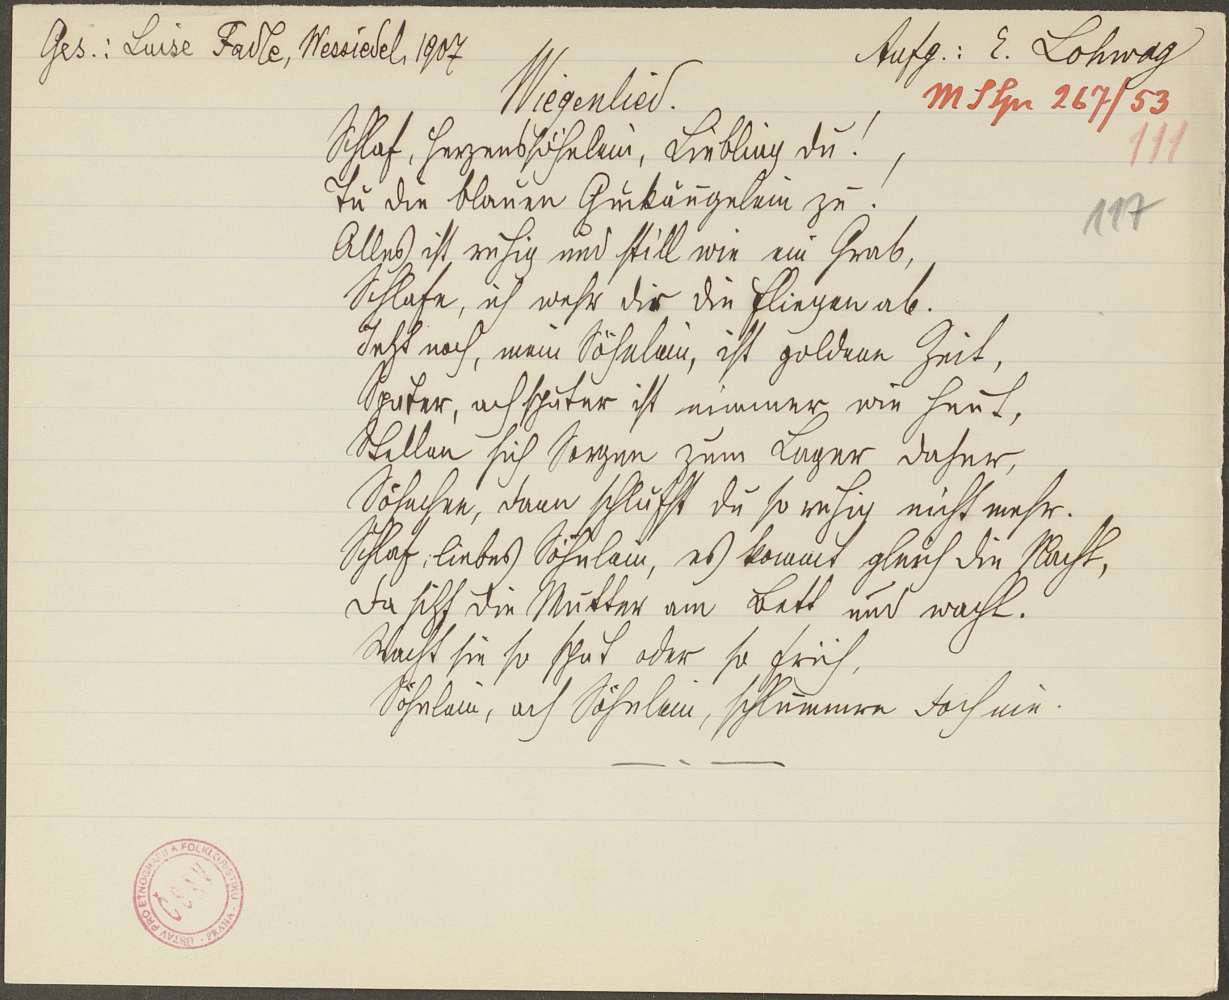 Ges.: Luise Fadle, Wessiedel, 1907
Aufg.: E. Lohwag
Wiegenlied.
267/53
111
117
Schlaf, Herzenssöhnlein, Liebling du!
Tu die blauen Guckäugelein zu!
Alles ist ruhig und still wie ein Grab,
Schlafe, ich wehr dir die Fliegen ab.
Jetzt noch, mein Söhnlein, ist goldene Zeit,
Später, ach später ist nimmer wie heut,
Stellen sich Sorgen zum Lager daher,
Söhnchen, dann schläfst du so ruhig nicht mehr.
Schlaf, liebes Söhnlein, es kommt gleich die Nacht,
Da sitzt die Mutter am Bett und wacht.
Wacht sie so spät oder so früh,
Söhnlein, ach Söhnlein, schlummre doch nie.
ÚSTAV PRO ETNOGRAFII A FOLKLORISTIKU · PRAHA ·
ČSAV